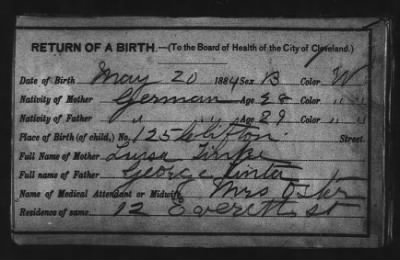 RETURN OF A BIRTH.—(To the Board of Health of the City of Cleveland.)
Date of Birth May 20 1884 Sex B Color W
Nativity of Mother German Age 28 Color " "
Nativity of Father " Age 29 Color " "
Place of Birth (of child,) No. 125 Clifton Street.
Full Name of Mother Luisa
Full name of Father George
Name of Medical Attendant or Midwife Mrs
Residence of same 12 Everett st